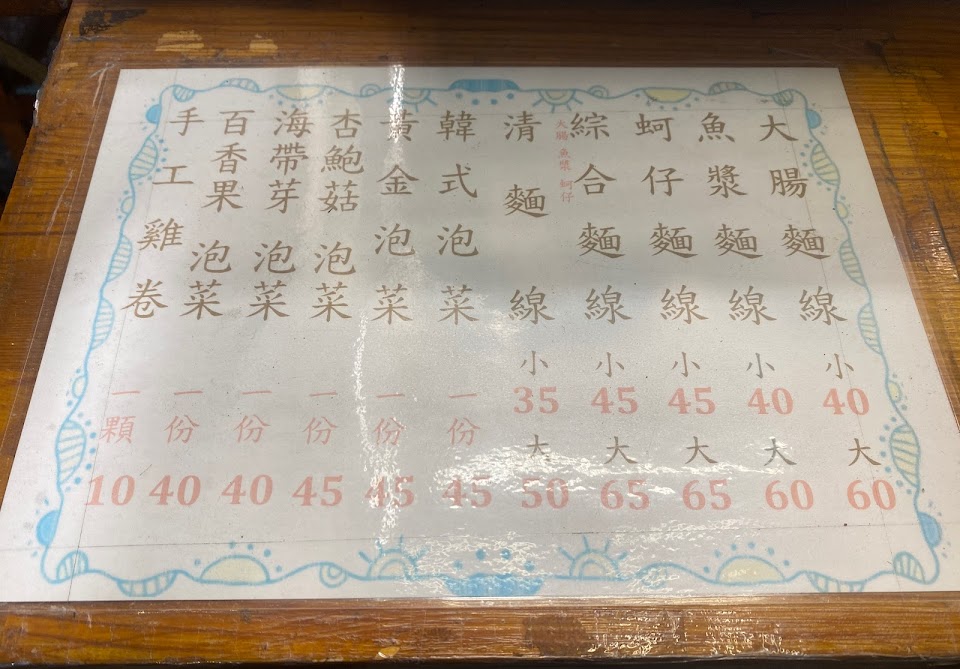 大腸麵線 小 40 大 60
魚漿麵線 小 40 大 60
蚵仔麵線 小 45 大 65
綜合麵線 小 45 大 65
大腸 魚漿 蚵仔
清麵線 小 35 大 50
韓式泡菜 一份 45
黃金泡菜 一份 45
杏鮑菇泡菜 一份 45
海帶芽泡菜 一份 40
百香果泡菜 一份 40
手工雞卷 一顆 10